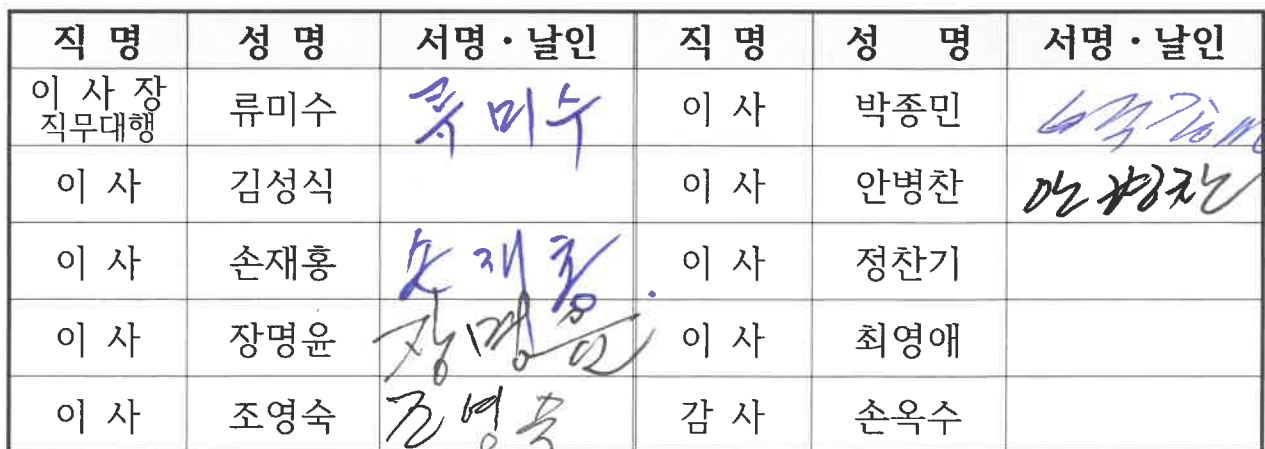 직 명 성 명 서명·날인 직 명 성 명 서명·날인
이 사 장
직무대행 류미수 류미수 이 사 박종민
이 사 김성식 이 사 안병찬 안병찬
이 사 손재홍 손재홍 이 사 정찬기
이 사 장명윤 장명윤 이 사 최영애
이 사 조영숙 조영숙 감 사 손옥수